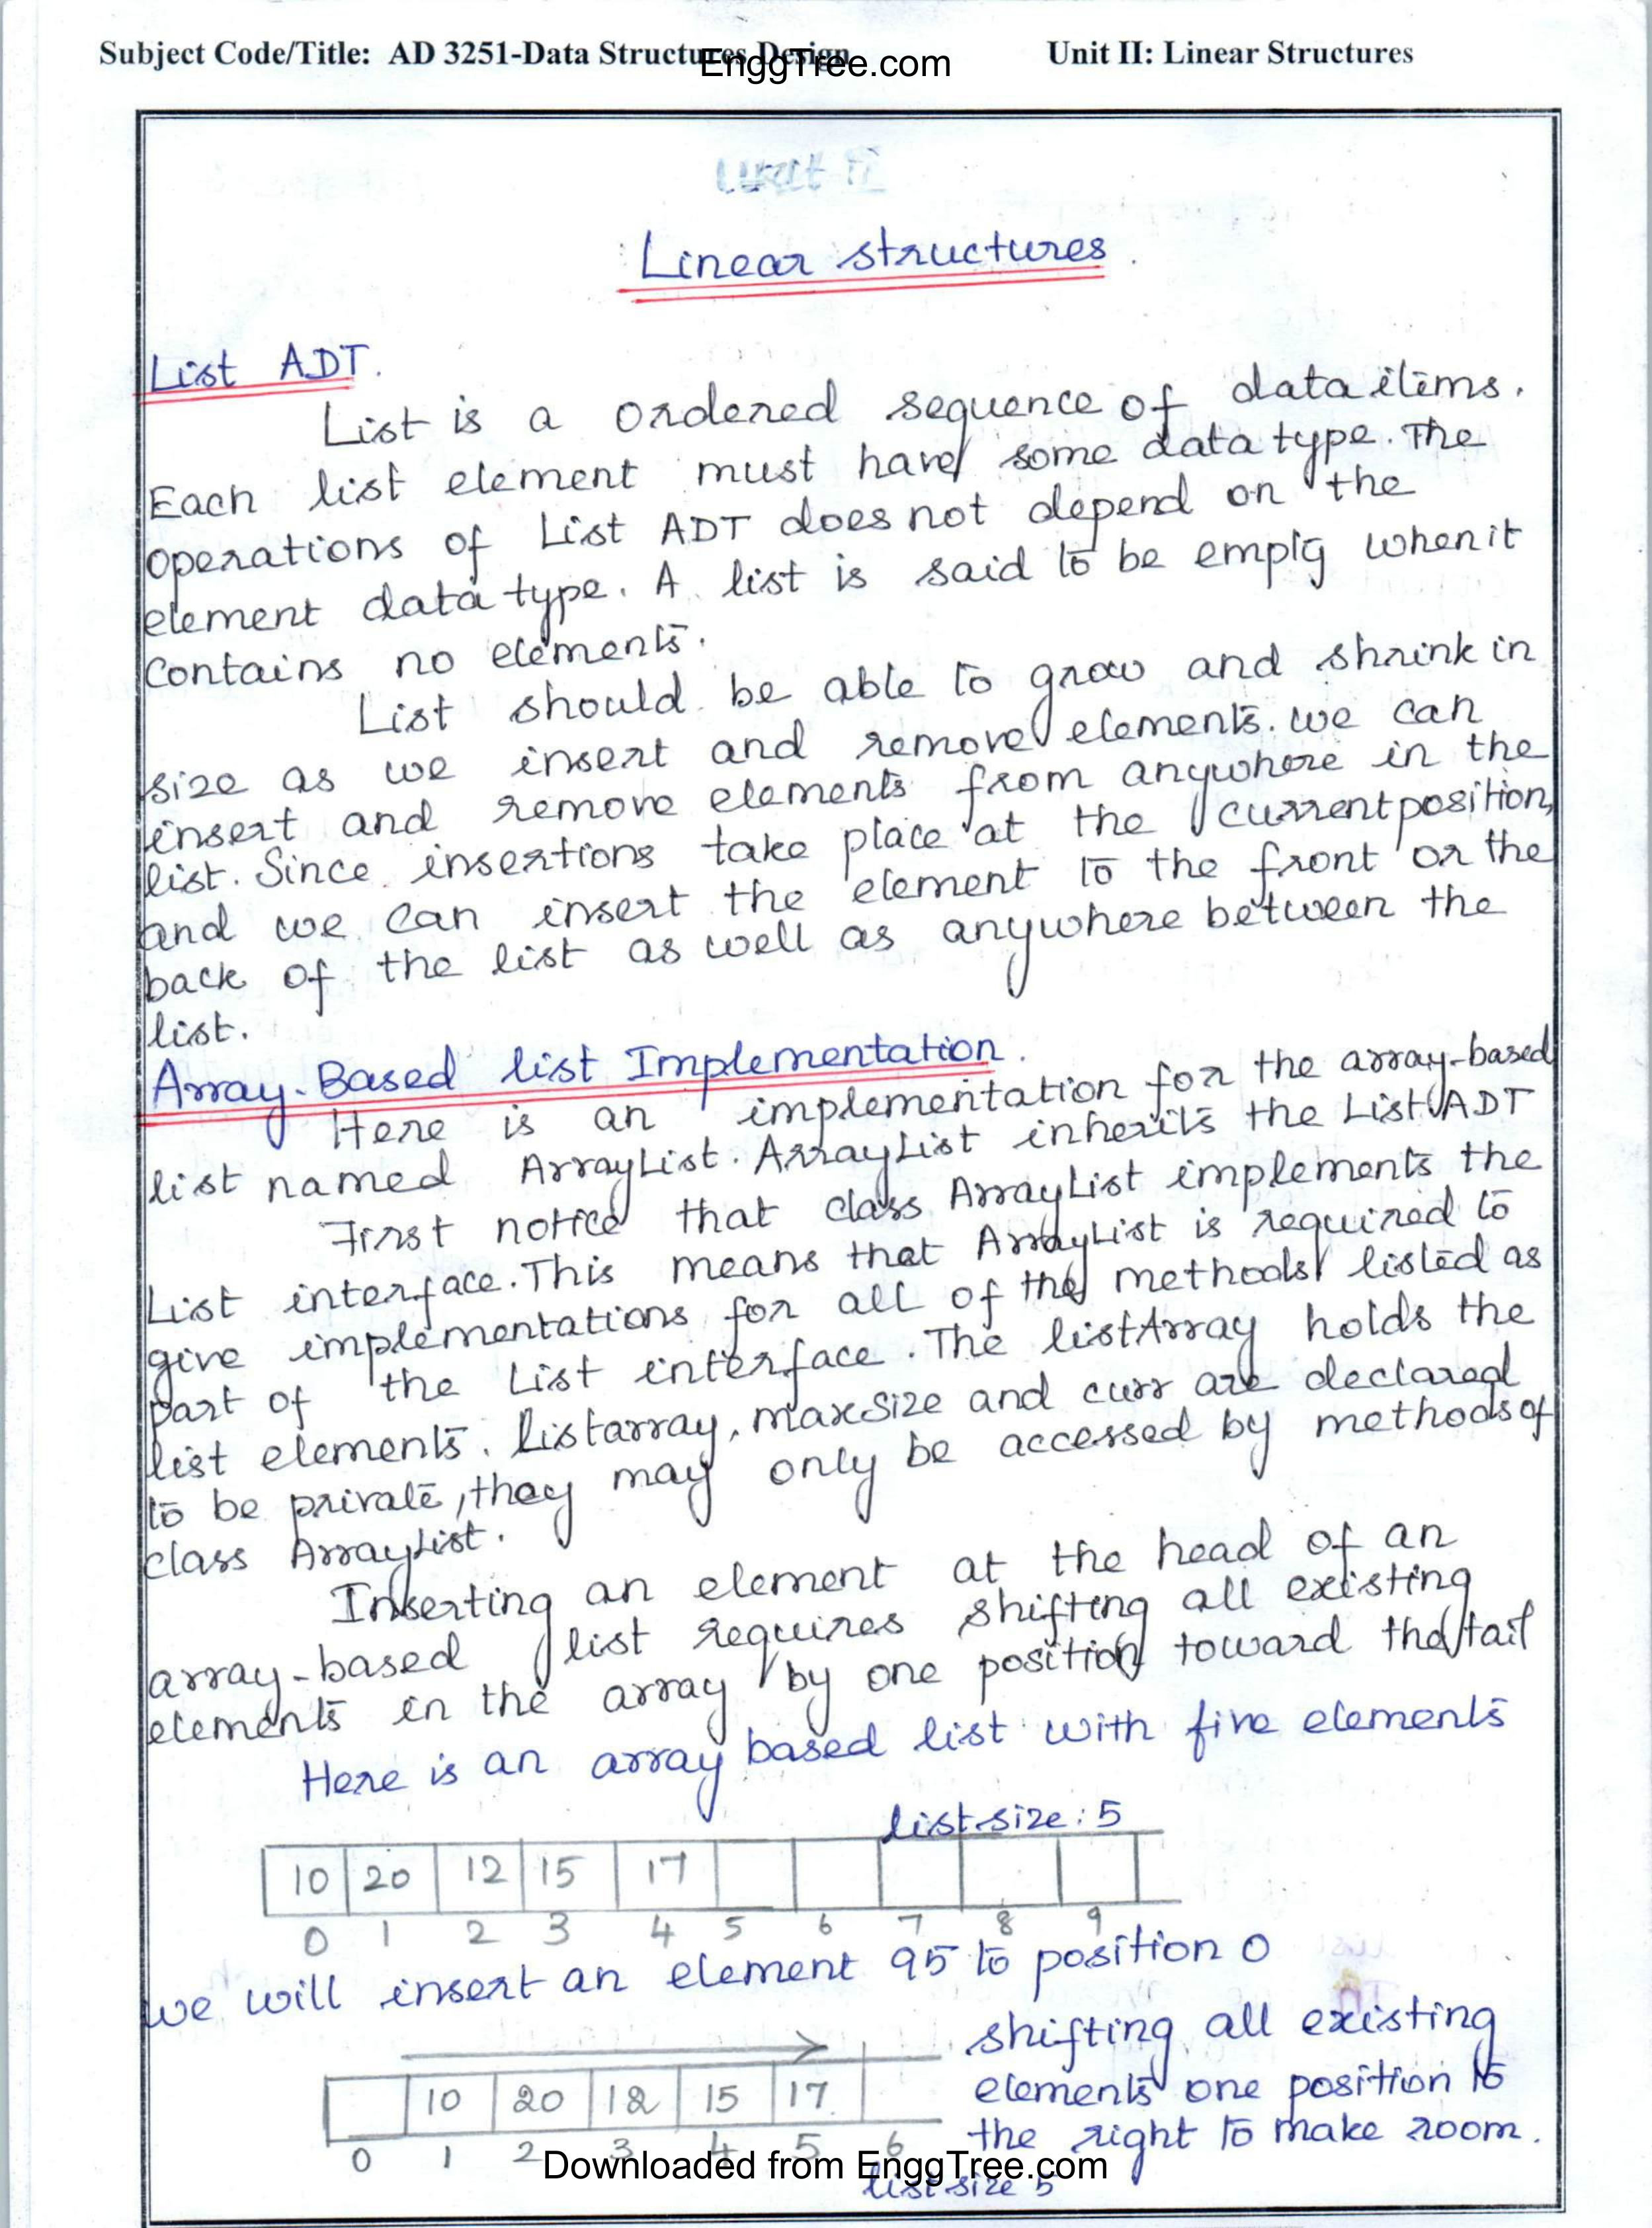 Subject Code/Title: AD 3251-Data Structures Design Unit II: Linear Structures
EnggTree.com
Unit II
Linear structures
List ADT.
List is a ordered sequence of data items.
Each list element must have some data type. The
operations of List ADT does not depend on the
element data type. A list is said to be empty when it
contains no elements.
List should be able to grow and shrink in
size as we insert and remove elements. we can
insert and remove elements from anywhere in the
list. Since insertions take place at the current position,
and we can insert the element to the front or the
back of the list as well as anywhere between the
list.
Array-Based list Implementation.
Here is an implementation for the array-based
list named ArrayList. ArrayList inherits the List ADT
First notice that class ArrayList implements the
List interface. This means that ArrayList is required to
give implementations for all of the methods listed as
part of the List interface. The listArray holds the
list elements. listarray, maxsize and curr are declared
to be private, they may only be accessed by methods of
class ArrayList.
Inserting an element at the head of an
array-based list requires shifting all existing
elements in the array by one position toward the tail
Here is an array based list with five elements
list size: 5
10 20 12 15 17
0 1 2 3 4 5 6 7 8 9
we will insert an element 95 to position 0
shifting all existing
elements one position to
the right to make room.
10 20 12 15 17
0 1 2 3 4 5 6
list size 5
Downloaded from EnggTree.com